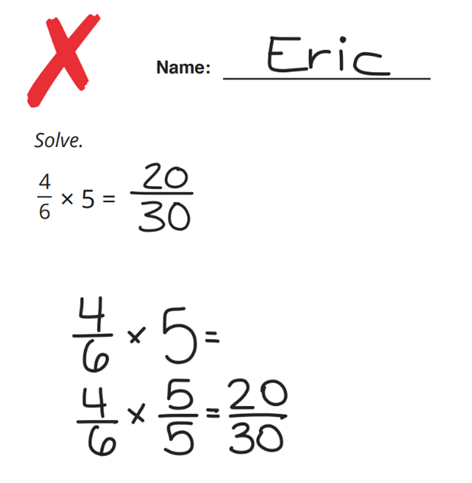 Name: Eric
Solve.
4/6 × 5 = 20/30
4/6 × 5 =
4/6 × 5/5 = 20/30